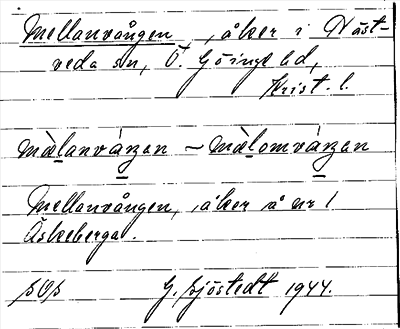 Mellanvången, åker i Näst-
veda sn, Ö. Göinge hd,
Krist. l.
mälanváŋan ~ mälomváŋan
Mellanvången, åker å nr 1
Äskeberga.
SOS G. Sjöstedt 1944.